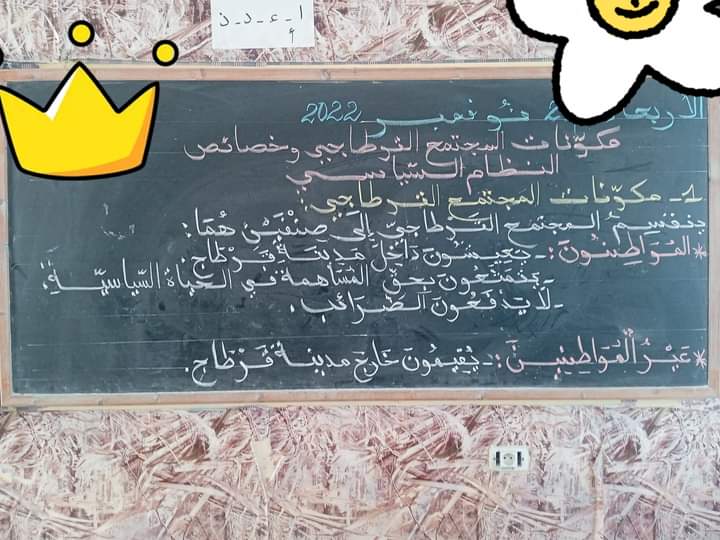 أ - ء - د - ذ
الأربعاء 2 نوفمبر 2022
مكوّنات المجتمع القرطاجي وخصائص
النظام السّياسي
1- مكوّنات المجتمع القرطاجي:
ينقسم المجتمع القرطاجيّ إلى صنفين هُمَا:
*المُوَاطِنُونَ: - يَعِيشُونَ دَاخِلَ مَدِينَة قَرْطَاج.
- يتمتّعُونَ بِحَقّ المُسَاهمة في الحيَاة السّياسيّةِ.
- لَا يَدفَعُونَ الضَرَائب.
*غَيْرُ الْمُوَاطِنِينَ: - يُقِيمُونَ خَارِجَ مدينة قَرْطَاج.